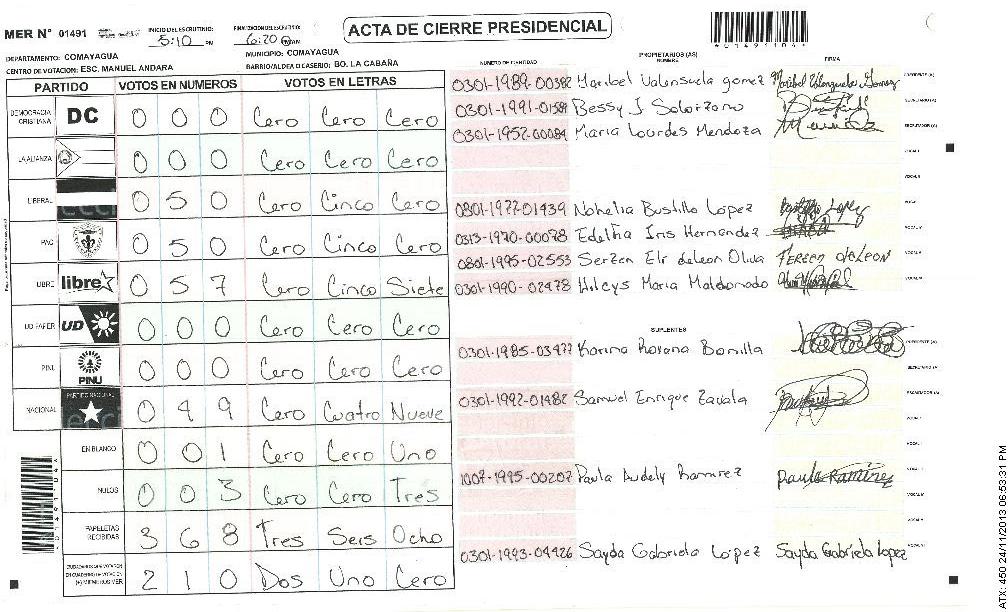 MER N° 01491
INICIO DEL ESCRUTINIO: 5:10 PM
FINALIZACION DEL ESCRUTINIO: 6:20 PM
ACTA DE CIERRE PRESIDENCIAL
*01491104*
DEPARTAMENTO: COMAYAGUA
MUNICIPIO: COMAYAGUA
CENTRO DE VOTACION: ESC. MANUEL ANDARA
BARRIO/ALDEA O CASERIO: BO. LA CABAÑA
PARTIDO VOTOS EN NUMEROS VOTOS EN LETRAS
DEMOCRACIA CRISTIANA DC 0 0 0 Cero Cero Cero
LA ALIANZA 0 0 0 Cero Cero Cero
LIBERAL 0 5 0 Cero Cinco Cero
PAC 0 5 0 Cero Cinco Cero
LIBRE libre 0 5 7 Cero Cinco Siete
UD FAPER UD 0 0 0 Cero Cero Cero
PINU PINU 0 0 0 Cero Cero Cero
NACIONAL PARTIDO NACIONAL 0 4 9 Cero Cuatro Nueve
EN BLANCO 0 0 1 Cero Cero Uno
NULOS 0 0 3 Cero Cero Tres
PAPELETAS RECIBIDAS 3 6 8 Tres Seis Ocho
CIUDADANOS QUE VOTARON EN CUADERNO DE VOTACION (+) MIEMBROS MER 2 1 0 Dos Uno Cero
PROPIETARIOS (AS)
NUMERO DE IDENTIDAD NOMBRE FIRMA
0301-1989-00382 Maribel Valensuela gomez Maribel Valenzuela Gomez PRESIDENTE (A)
0301-1991-01584 Bessy J Solorzano SECRETARIO (A)
0301-1952-00084 Maria Lourdes Mendoza ESCRUTADOR (A)
VOCAL I
VOCAL II
0801-1977-01439 Nohelia Bustillo Lopez
0313-1970-00078 Edeltha Iris Hernandez
0801-1995-02553 Serzen Elr deleon Oliva
0301-1990-02478 Hilcys Maria Maldonado
SUPLENTES
0301-1985-03477 Karina Roxana Bonilla PRESIDENTE (A)
SECRETARIO (A)
0301-1992-01482 Samuel Enrique Zavala ESCRUTADOR (A)
1007-1995-00202 Paula Audely Ramirez Paula Ramirez
0301-1993-04426 Sayda Gabriela López Sayda Gabriela Lopez
ATX: 450 24/11/2013 06:53:31 PM